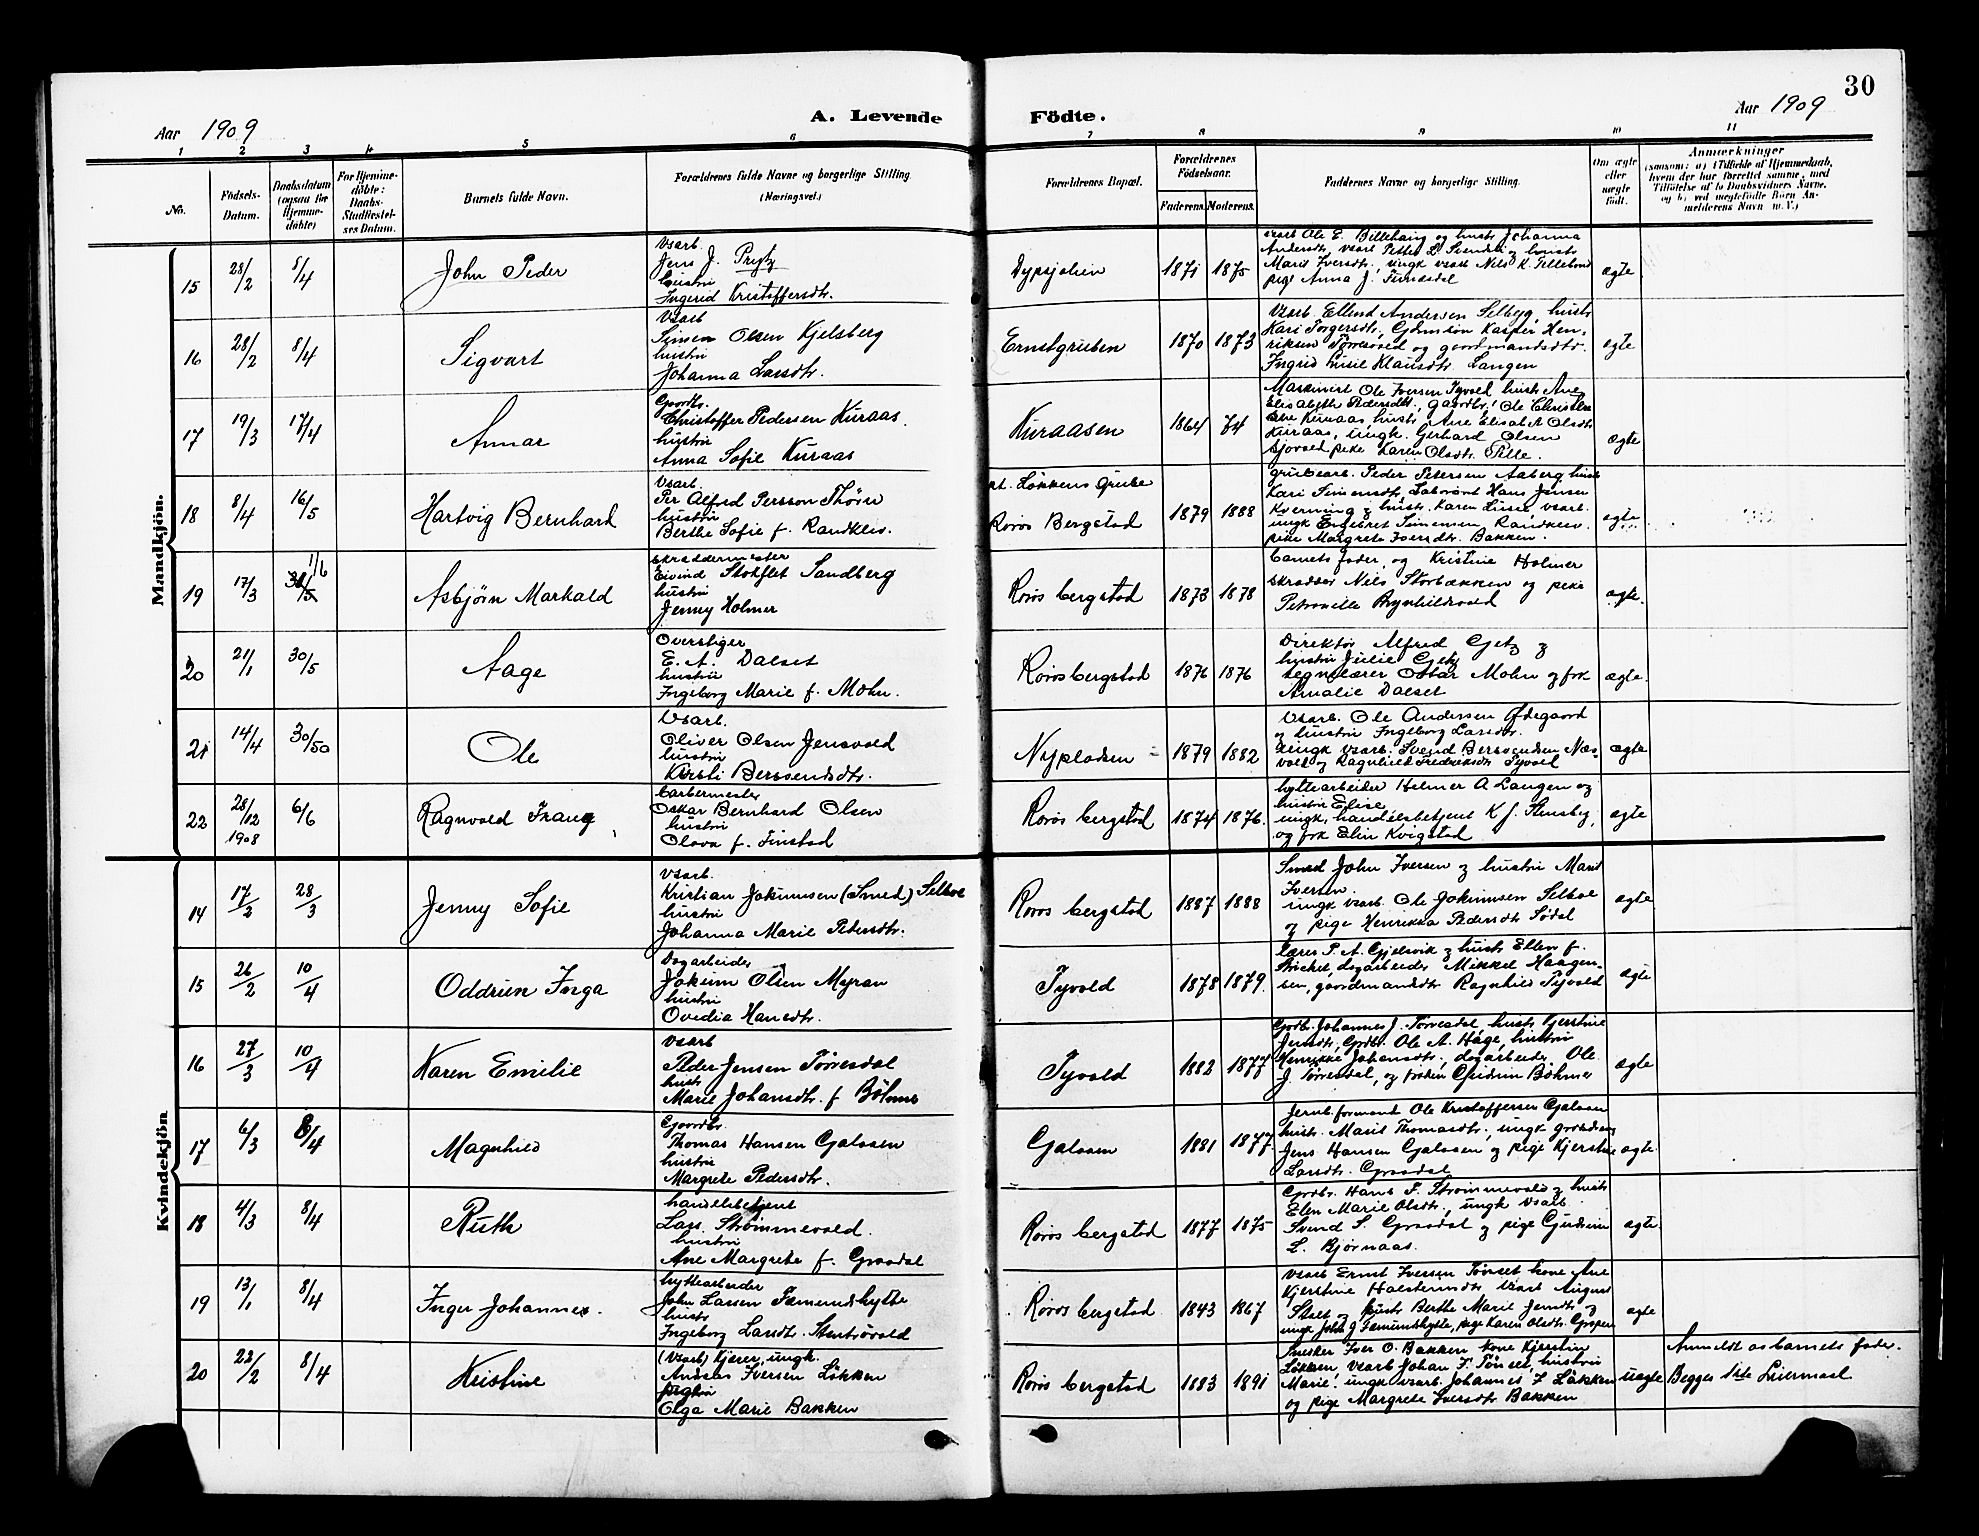 30
Aar 1909
A. Levende
Födte.
Aar 1909
1 2 3 4 5 6 7 8 9 10 11
No.
Födsels-Datum.
Daabsdatum (ogsaa for Hjemmedöbte)
For Hjemmedöbte: Daabs-Stadfæstelses Datum.
Barnets fulde Navn.
Forældrenes fulde Navne og borgerlige Stilling.
(Næringsvei.)
Forældrenes Bopæl.
Forældrenes Födselsaar.
Faderens. Moderens.
Faddernes Navne og borgerlige Stilling.
Om ægte eller uægte födt.
Anmærkninger
(saasom: a) i Tilfælde af Hjemmedaab,
hvem der har forrettet samme, med
Tilföielse af to Daabsvidners Navne,
og b) ved uægtefödte Börn Anmelderens Navn m. V.)
Mandkjön.
15 28/2 8/4 John Peder
Vsarb.
Jens J. Prytz
hustru
Ingerid Kristoffersdtr.
Dypsjølien 1871 1875
vsarb Ole E. Billehaug og hustr Johanna
Andersdtr, vsarb Petter L. Svendsli og hustr
Marit Iversdtr, ungk vsarb Nils K. Tillebond
pige Anna J. Finnesdal
ægte
16 28/2 8/4 Sigvart
Vsarb
Simen Olsen Kjelsberg
hustru
Johanna Larsdtr.
Ernstgruben 1870 1873
Vsarb. Ellend Andersen Selbyg, hustr
Kari Torgersdtr, Kasper Hen-
riksen Tørresvold og gaardmandsdtr.
Ingrid Lusie Klausdtr. Langen
ægte
17 19/3 17/4 Annar
Gaardbr.
Christoffer Pedersen Kuraas.
hustru
Anna Sofie Kuraas
Kuraasen 1864 74
Maskinist Ole Iversen Tyvold, hustr Ane
Elisabeth Pedersdtr, gaardbr. Ole Christen
Kuraas, hustr Ane Elisabet Olsdtr
Kuraas, ungk. Gerhard Olsen
pike Karen Olsdtr. Pille.
ægte
18 8/4 16/5 Hartvig Bernhard
Vsarb.
Per Alfred Persson Thörn
hustru
Berthe Sofie f. Randklev.
Løkkens Grube
Røros Bergstad 1879 1888
grubearb. Peder Petersen Aaberg, hustr
Kari Simensdtr, Laborant Hans Jensen
Kverning og hustr. Karen Lusie, vsarb.
ungk Engebret Simensen Randklev,
pike Margrete Iversdtr. Bakken.
ægte
19 17/3 30/5 1/6 Asbjørn Markald
Skræddermester
Eivind Stokflet Sandberg
hustru
Jenny Holmer
Røros bergstad 1873 1878
barnets fader, og Kristine Holmer
skrædder Nils Storbækken og pike
Petronille Brynhildsvold
ægte.
20 21/1 30/5 Aage
Overstiger
E. A. Dalset
hustru
Ingeborg Marie f. Mohn.
Røros bergstad 1876 1876
Direktør Alfred Getz og
hustru Julie Getz
tegnelærer Oskar Mohn og frk
Amalie Dalset
ægte.
21 14/4 30/50 Ole
Vsarb.
Oliver Olsen Jensvold
hustru
Kirsti Berssendsdtr.
Nypladsen 1879 1882
Vsarb. Ole Andersen Ødegaard
og hustru Ingeborg Larsdtr.
ungk vsarb. Svend Bersvendsen Næs-
vold og Ragnhild Fredriksdtr Tyvold
ægte
22 28/12 1908 6/6 Ragnvald Frang
barbermester
Oskar Bernhard Olsen
hustru
Olava f. Finstad
Røros bergstad 1874 1876.
hyttearbeider Helmer A Langen og
hustru Elise,
ungk. handelsbetjent K J. Stensby,
og frk Elin Kvigstad
ægte
Kvindekjön
14 17/2 28/3 Jenny Sofie
Vsarb.
Kristian Jokumsen (Smed) Selboe
hustru
Johanna Marie Pedersdtr.
Røros bergstad 1887 1888
Smed John Iversen og hustru Marit
Iversen.
ungk vsarb. Ole Jokumsen Selboe
og pige Henrikka Pedersdtr Sødal
ægte
15 26/2 10/4 Oddrun Inga
Dagarbeider
Jokum Olsen Myran
hustru
Ovedia Hansdtr.
Tyvold 1878 1879.
lærer P. A. Gjelsvik og hustr Ellen f.
Stricket, dagarbeider Mikkel Haagen-
sen, gaardmandsdtr Ragnhild Tyvold
ægte
16 27/3 10/4 Karen Emilie
Vsarb
Peder Jensen Tørresdal
hustr
Marie Johansdtr. f Böhmer
Tyvold 1882 1877
Grdbr. Johannes J. Tørresdal, hustr Kjerstine
Jensdtr, Grdbr. Ole A. Hage, hustru
Henrikke Johansdtr., dagarbeider Ole
J. Tørresdal, og frøken Gudrun Böhmer
ægte
17 6/3 8/4 Magnhild
Gaardbr.
Thomas Hansen Galaaen
hustru
Margrete Pedersdtr.
Galaaen 1881 1877
Jernb.formand Ole Kristoffersen Galaaen
hustr. Marit Thomasdtr., ungk
Jens Hansen Galaaen og pige Kjerstine
Larsdtr. Graadal
ægte.
18 4/3 8/4 Ruth
handelsbetjent
Lars Strømmevold.
hustru
Ane Margrete f. Graadal
Røros bergstad 1877 1875
Grdbr. Hans P. Strømmevold og hustr
Elen Marie Olsdtr, ungk vsarb.
Svend S. Graadal og pige Gudrun
L. Bjørnaas.
ægte
19 13/1 8/4 Inger Johanne.
hyttearbeider
John Larsen Fæmundhytte
hustr
Ingeborg Larsdtr. Stentrøvold
Røros bergstad 1843 1867
Vsarb Ernst Iversen Tønset kone Ane
Kjerstine Halstensdtr vsarb August
Stolt og hustr Berthe Marie Jensdtr og
ungk John J Fæmundshytte, pige Karen Olsdtr. Gropen
ægte
20 22/2 8/4 Kristine
(Vsarb) Kjører, ungk.
Andreas Iversen Løkken
pige
Olga Marie Bakken
Røros bergstad 1883 1891
Snekker Iver O. Bakken kone Kjerstin
Løkken, vsarb Johan F. Tønset, hustru
Marie. ungk vsarb. Johannes I Løkken
og pige Margrete Iversdtr Bakken
uægte
Anmeldt av barnets fader.
Begges 1ste Leiermaal